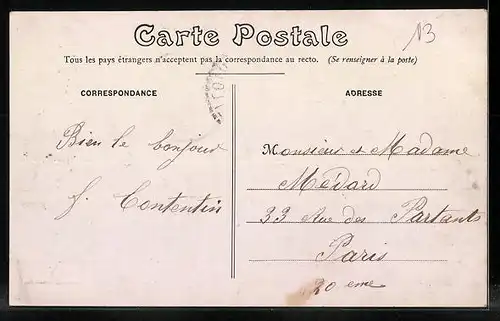 Carte Postale
13
Tous les pays étrangers n'acceptent pas la correspondance au recto. (Se renseigner à la poste)
CORRESPONDANCE
ADRESSE
Bien le bonjour
f. Contentin
Monsieur et Madame
Médard
33 Rue des Partants
Paris
20 eme